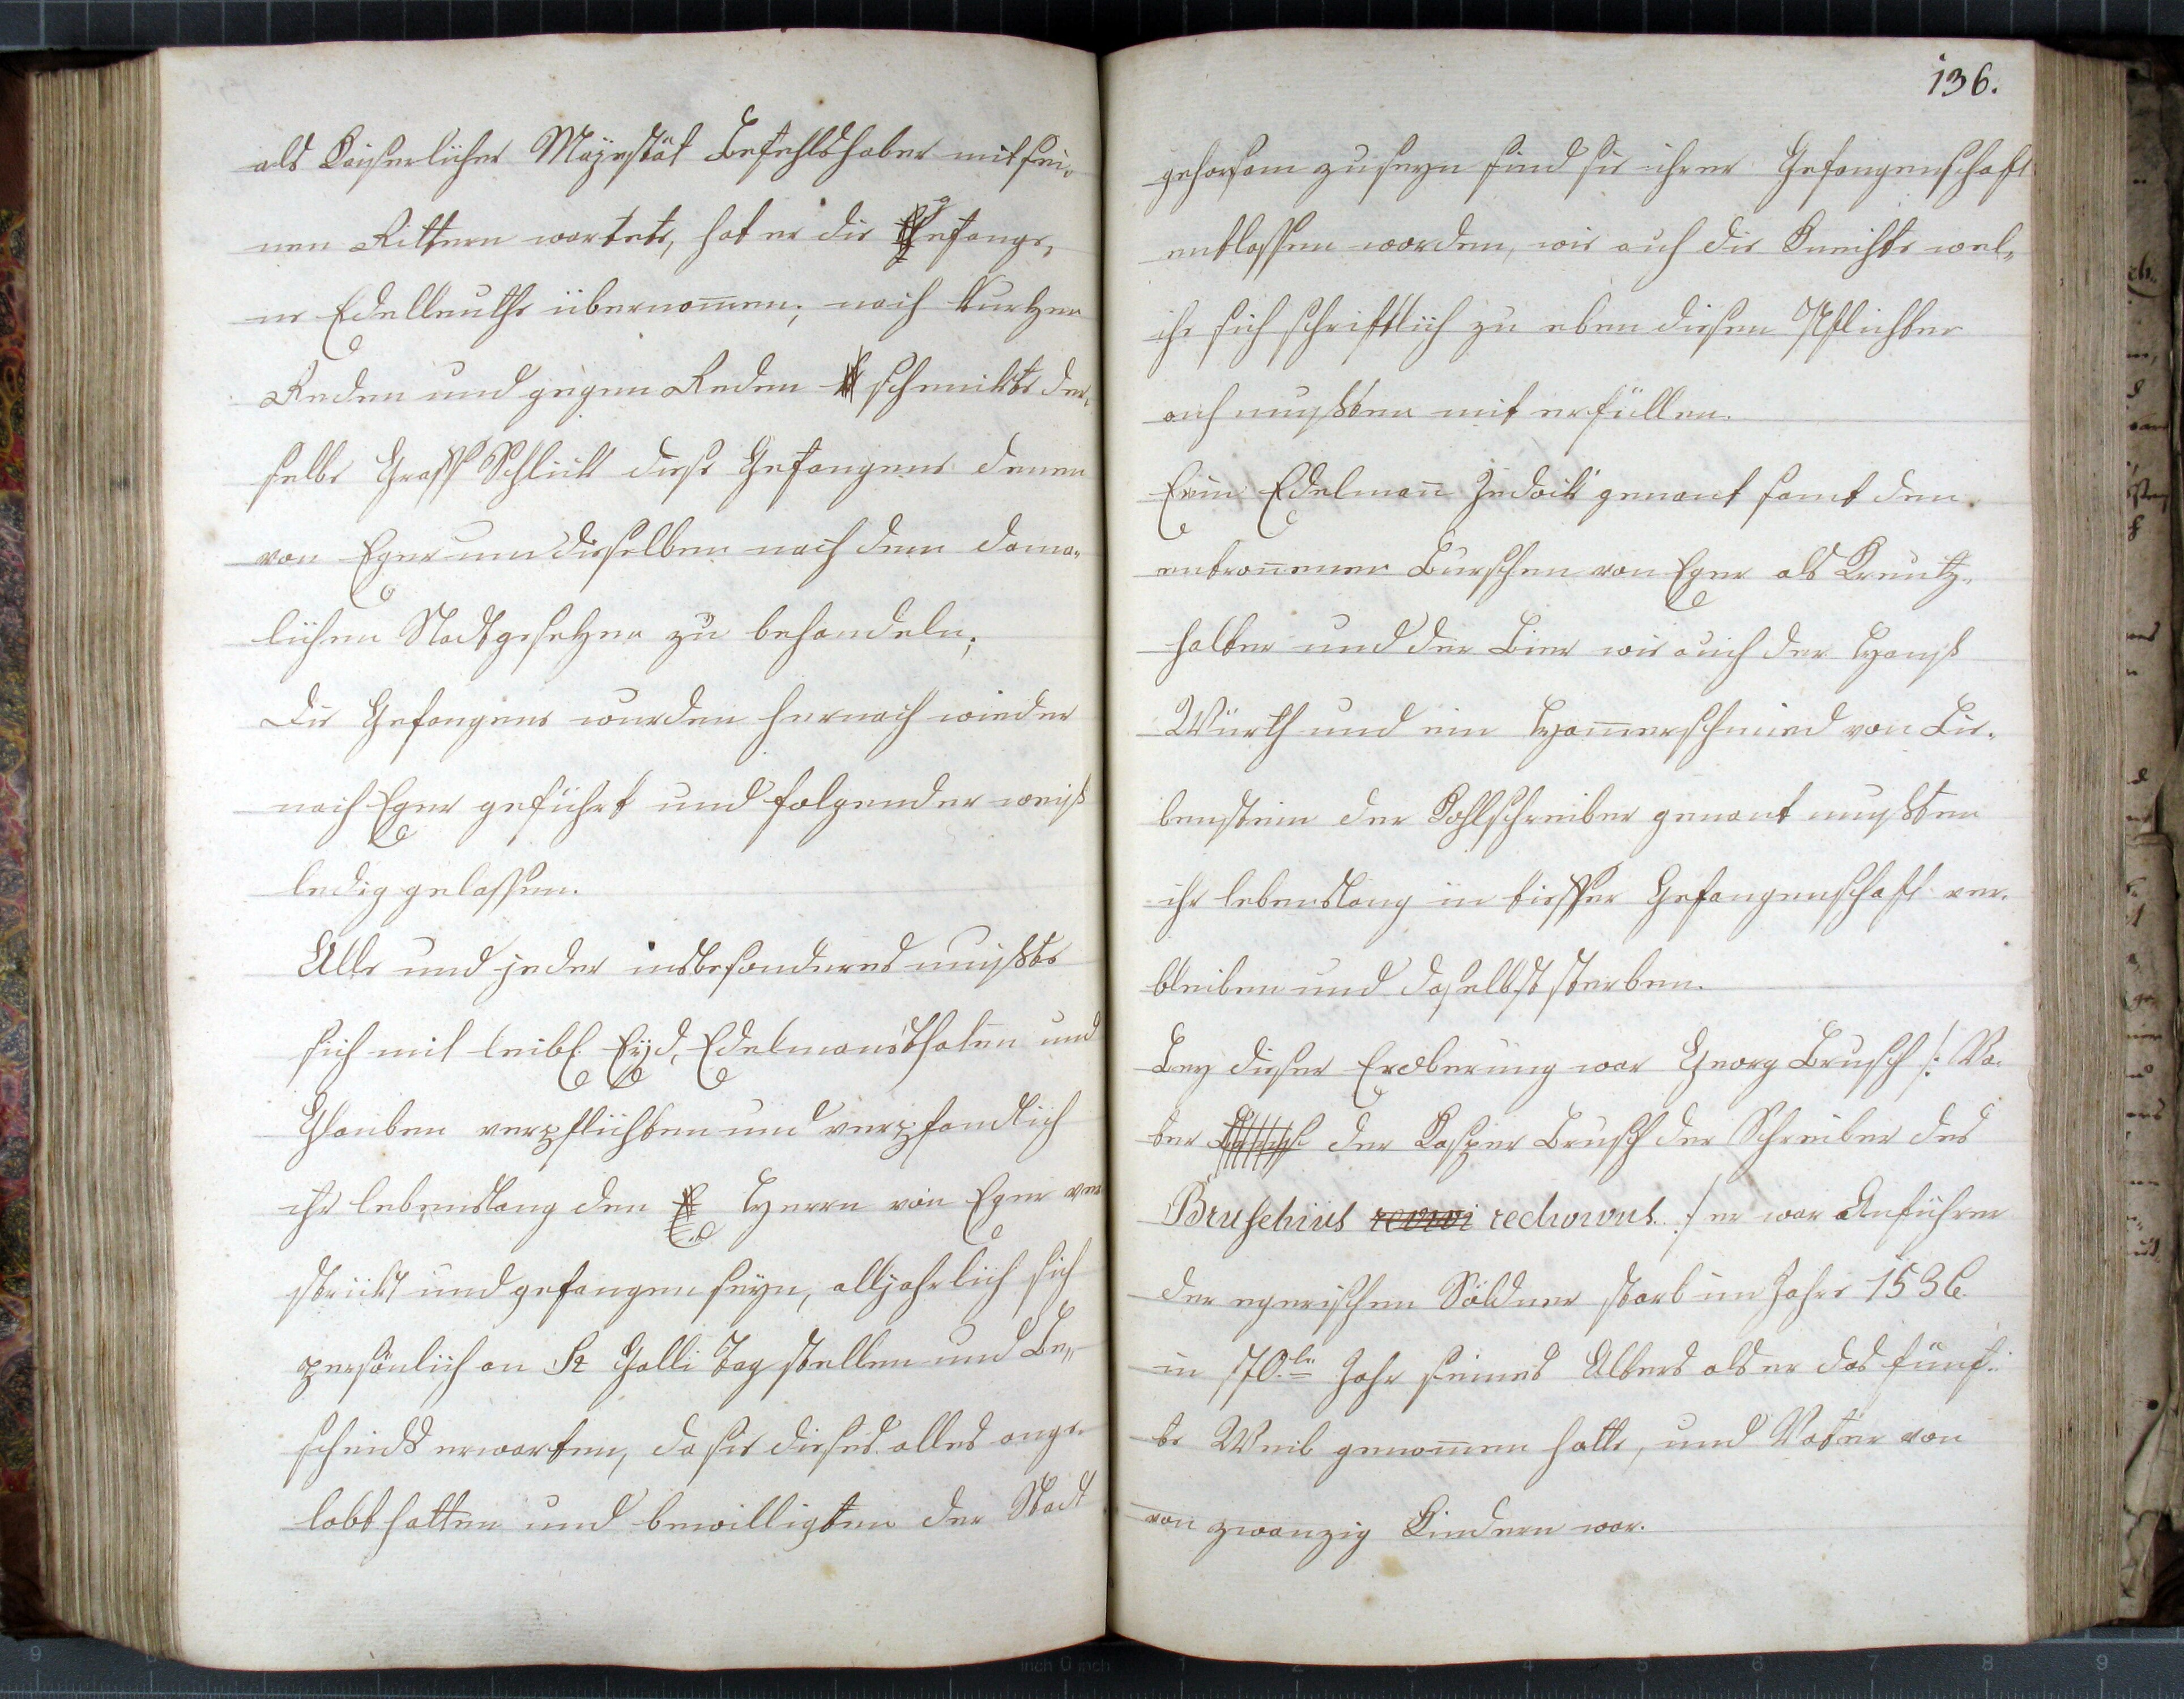 als Kaiserlicher Majestät Befehlshaber mit sei-
nen Rittern wartete, hat er die gefange-
ne Edelleuthe übernom̄en; nach kurtzen
Reden und gegen Reden schenckte der-
selbe Graff Schlick diese Gefangene denen
von Eger um dieselben nach dem dama-
lichen Stadtgesetzen zu behandeln;
Die Gefangene wurden hernach wieder
nach Eger geführt und folgender weiß
ledig gelassen.
Alle und jeder insbesonderes mußte
sich mit leibl. Eÿd, Edelmans und
Glauben verpflichten und verpfandlich
ihr lebenslang den Herrn von Eger ver
strickt und gefangen seÿn, alljahrlich sich
persönlich an St Galli Tag stellen und Be-
scheids erwarten, da sie dieses alles ange-
lobt hatten und bewilligten der Stadt
136.
gehorsam zu seyn sind sie ihrer Gefangenschaft
entlassen worden, wie auch die Knechte wel-
che sich schriftlich zu eben diesen Pflichten
auch mußten mit erfüllen.
Ein Edelman̄ genant samt den
entron̄enen Burschen von Eger als
halter und der Bier wie auch der Hanß
Würth und ein Ham̄erschmied von Lie-
benstein der Kohlschreiber genant mußten
ihr lebenslang in tieffer Gefangenschaft ver-
bleiben und daselbst sterben.
Bey dieser Eroberung war Georg Brusch /: Va-
ter der Kasper Brusch der Schreiber des
Bruschius :/ er war Anführer
der egerischen Söldner starb im Jahre 1536
in 70.ten Jahr seines Alters als er das fünf-
te Weib genom̄en hatte, und Vater von
von zwanzig Kindern war.